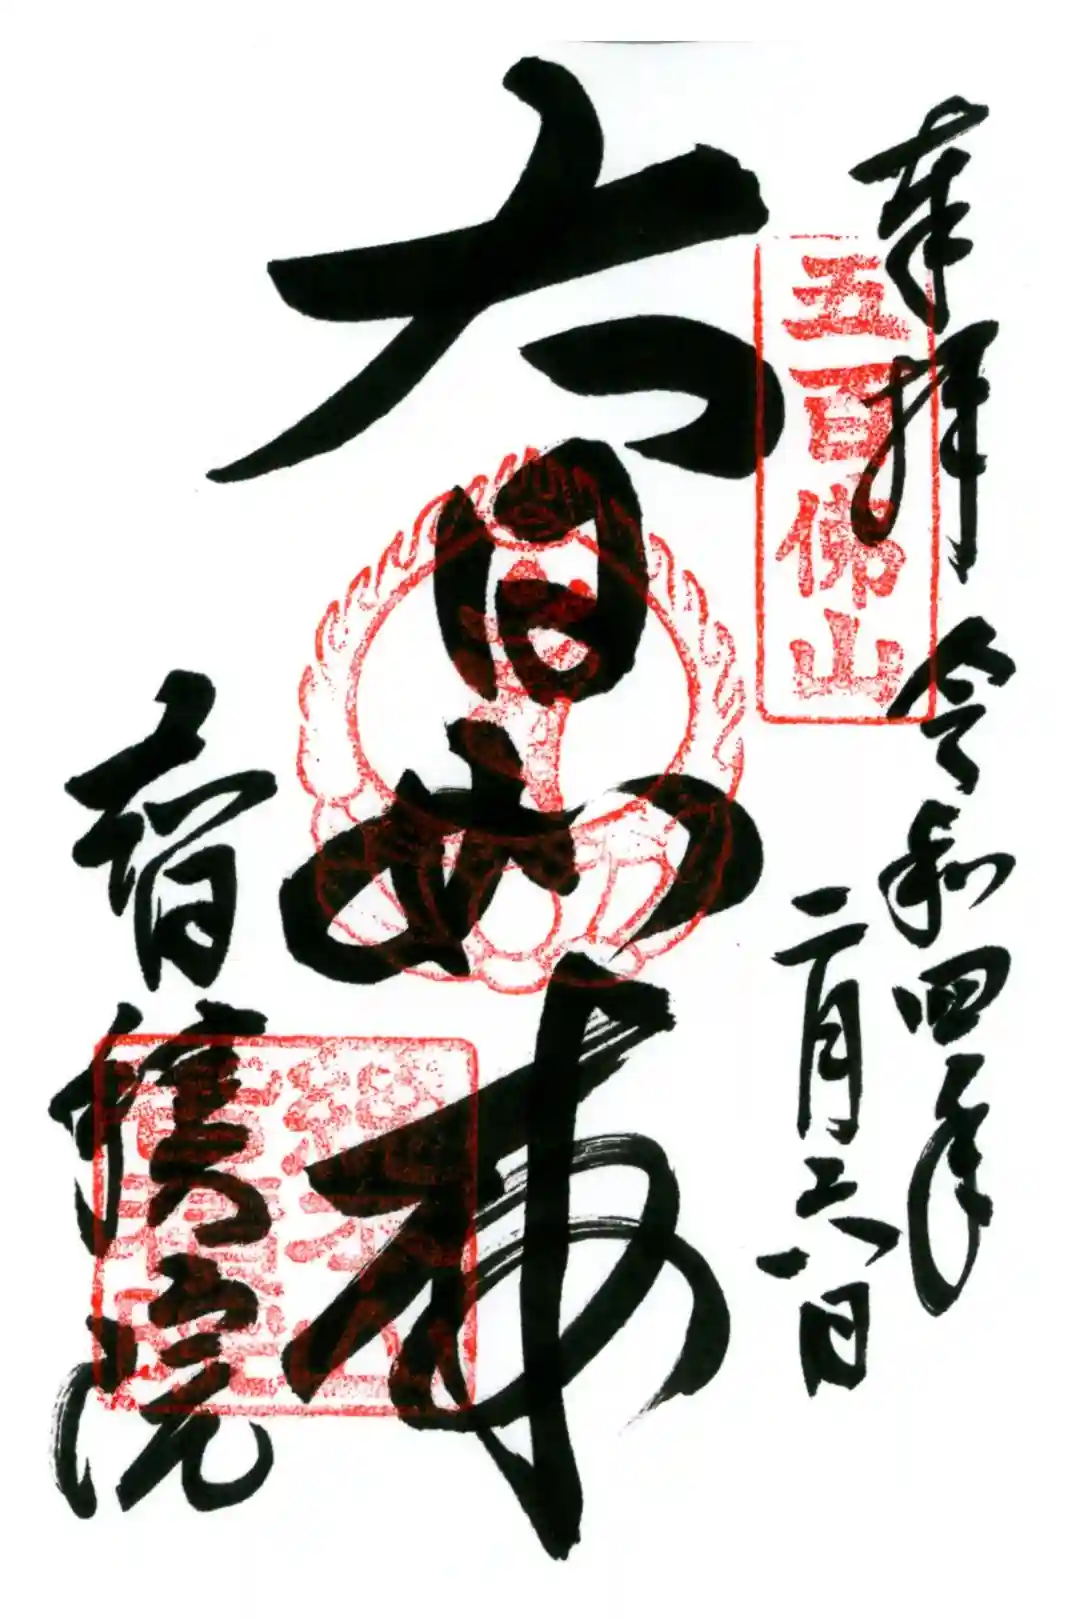 奉拝 令和四年
二月二六日
五百佛山
大日如来
智積院